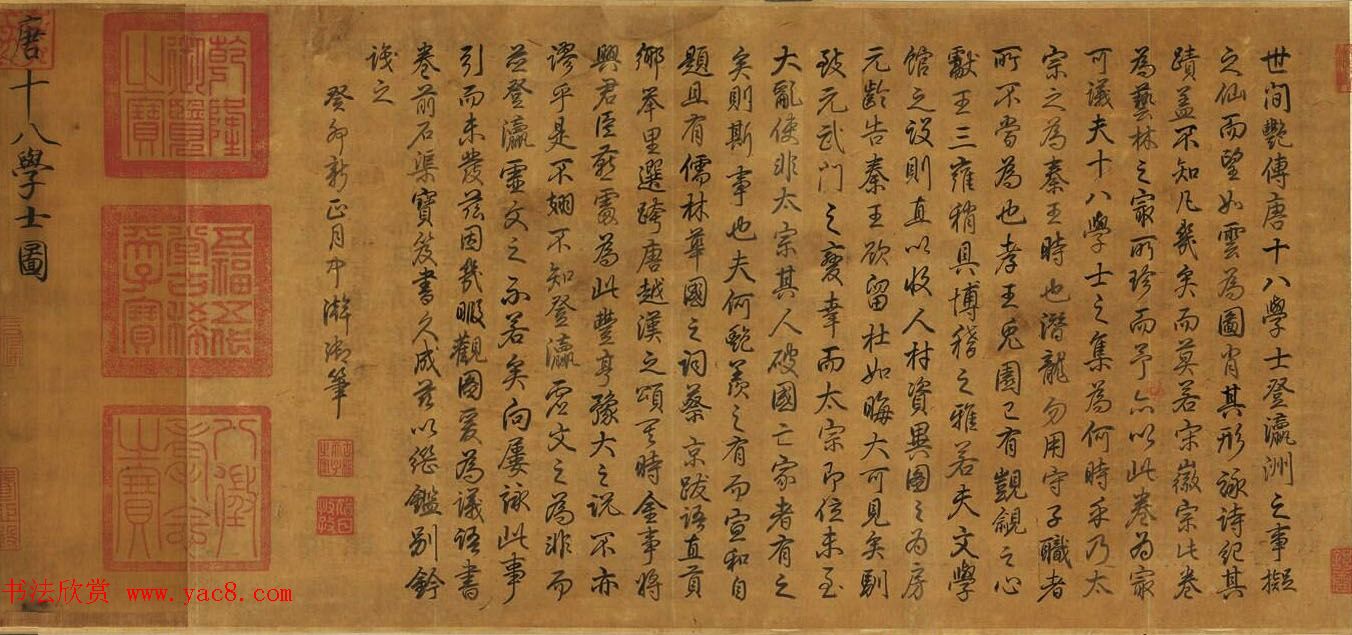 世间艷傳唐十八學士登瀛洲之事擬
之仙而望如雲為圖肖其形詠詩紀其
蹟盖不知凡幾矣而莫若宋徽宗此卷
為藝林之冣所珍而予亦以此卷為冣
可議夫十八學士之集為何時乎乃太
宗之為秦王時也潛龍勿用守子職者
所不當為也孝王兎園已有覬覦之心
獻王三雍稍具博稽之雅若夫文學
館之設則直以收人材資異圖之為房
元齡告秦王欲留杜如晦大可見矣馴
致元武門之變幸而太宗即位未至
大亂使非太宗其人破國亡家者有之
矣則斯事也夫何艶羨之有而宣和自
題且有儒林華國之詞蔡京跋語直頁
鄉舉里選跨唐越漢之頌其時金事將
興君臣燕雲為此豐亨豫大之説不亦
謬乎是不翅不知登瀛虛文之為非而
並登瀛虛文之不若矣向屢詠此事
引而未發茲因幾暇觀圖爰為議語書
卷前石渠寶笈書久成茲以繼鑑别鈐
識之
癸卯新正月中澣御筆
乾隆御覽之寶
五福五代堂古稀天子寶
八徵耄念之寶
唐十八學士圖
书法欣赏 www.yac8.com